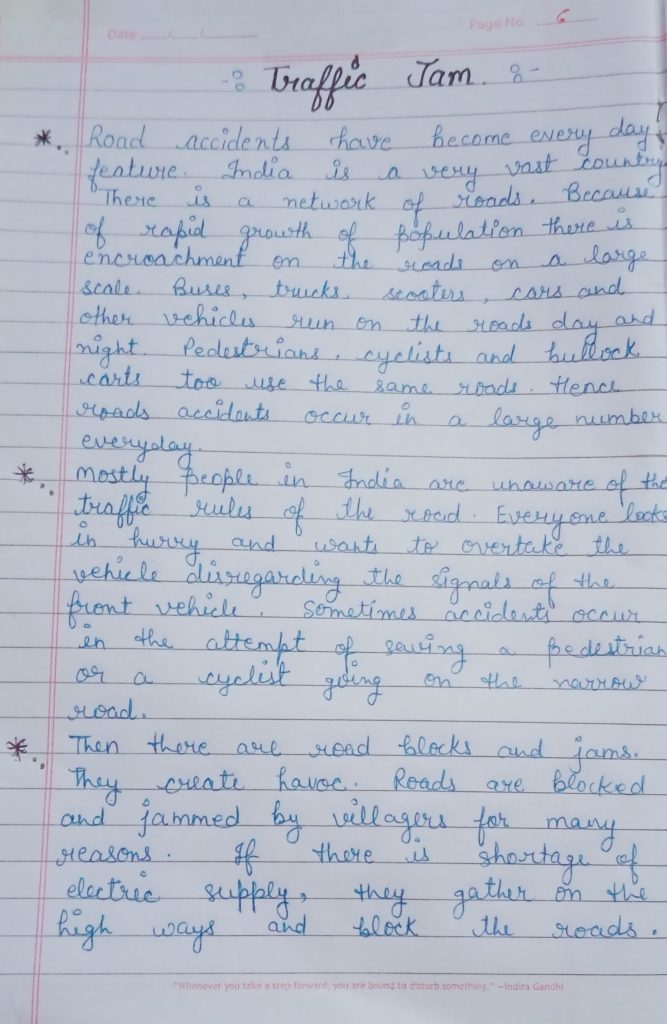 Date ___/___/______ Page No. 6
-: Traffic Jam. :-
*.. Road accidents have become every day
feature. India is a very vast country
There is a network of roads. Because
of rapid growth of population there is
encroachment on the roads on a large
scale. Buses, trucks, scooters, cars and
other vehicles run on the roads day and
night. Pedestrians, cyclists and bullock
carts too use the same roads. Hence
roads accidents occur in a large number
everyday.
*.. Mostly people in India are unaware of the
traffic rules of the road. Everyone looks
in hurry and wants to overtake the
vehicle disregarding the signals of the
front vehicle. Sometimes accidents occur
in the attempt of saving a pedestrian
or a cyclist going on the narrow
road.
*.. Then there are road blocks and jams.
They create havoc. Roads are blocked
and jammed by villagers for many
reasons. If there is shortage of
electric supply, they gather on the
high ways and block the roads.
"Whenever you take a step forward, you are bound to disturb something." –Indira Gandhi